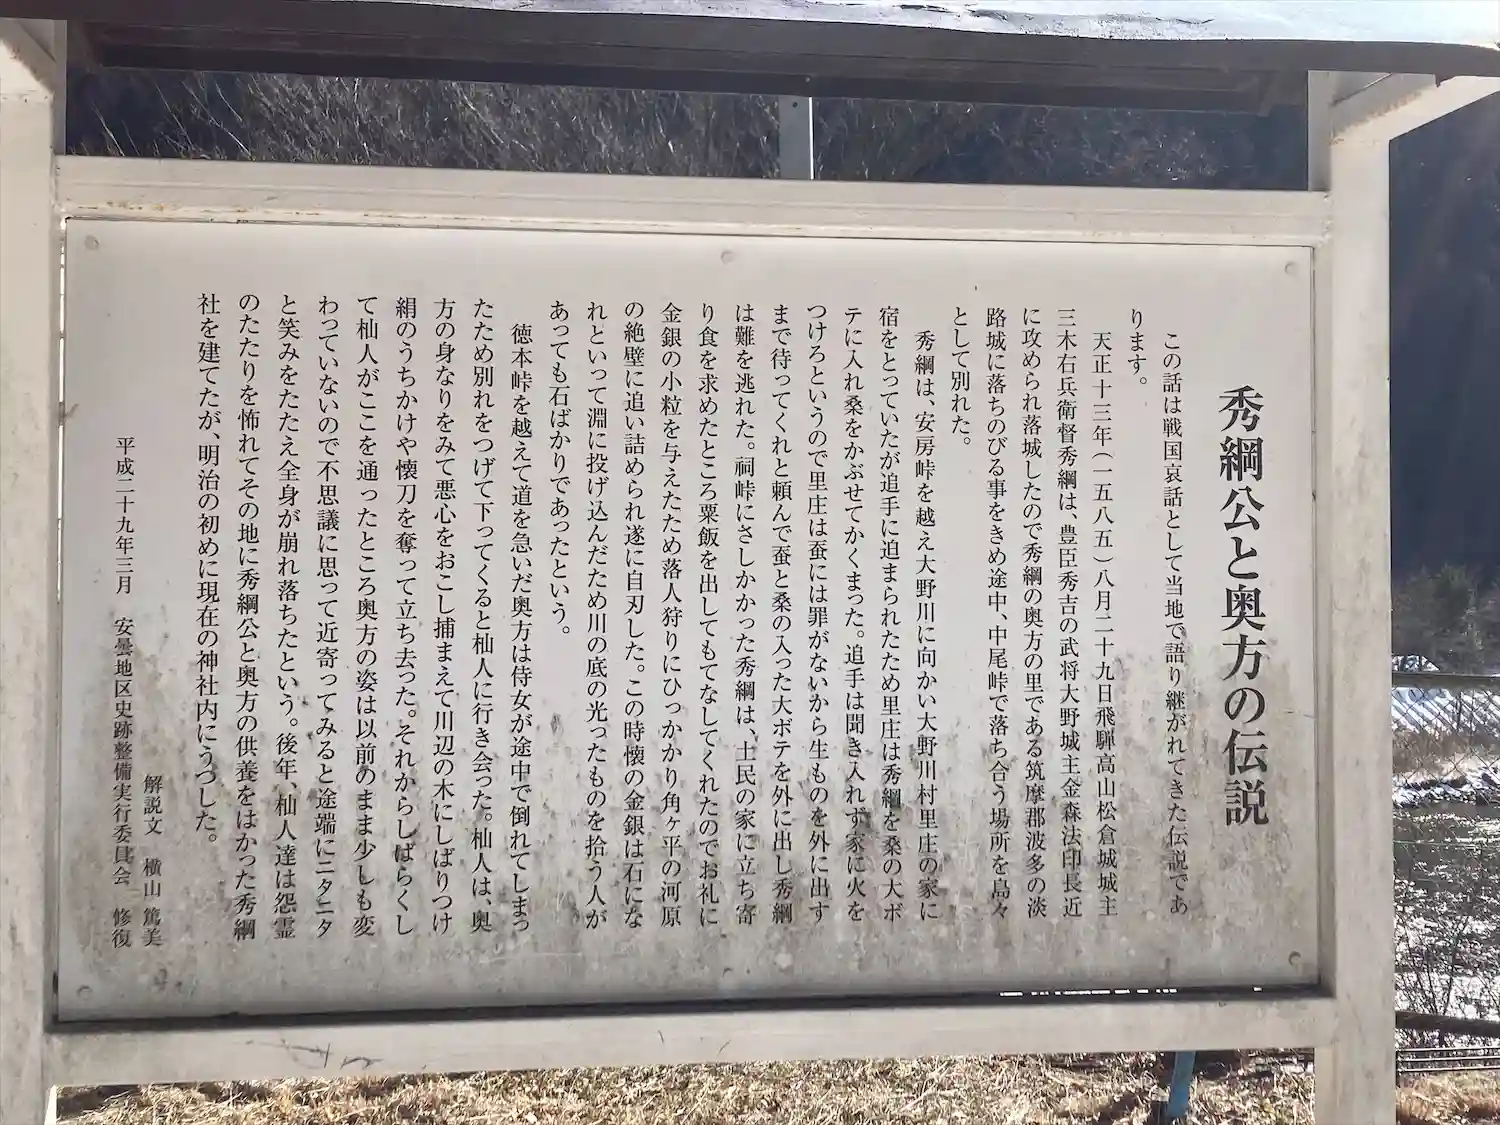 秀綱公と奥方の伝説
この話は戦国哀話として当地で語り継がれてきた伝説であ
ります。
天正十三年(一五八五)八月二十九日飛騨高山松倉城城主
三木右兵衛督秀綱は、豊臣秀吉の武将大野城主金森法印長近
に攻められ落城したので秀綱の奥方の里である筑摩郡波多の淡
路城に落ちのびる事をきめ途中、中尾峠で落ち合う場所を島々
として別れた。
秀綱は、安房峠を越え大野川に向かい大野川村里庄の家に
宿をとっていたが追手に迫まられたため里庄は秀綱を桑の大ボ
テに入れ桑をかぶせてかくまった。追手は聞き入れず家に火を
つけろというので里庄は蚕には罪がないから生ものを外に出す
まで待ってくれと頼んで蚕と桑の入った大ボテを外に出し秀綱
は難を逃れた。祠峠にさしかかった秀綱は、土民の家に立ち寄
り食を求めたところ粟飯を出してもてなしてくれたのでお礼に
金銀の小粒を与えたため落人狩りにひっかかり角ヶ平の河原
の絶壁に追い詰められ遂に自刃した。この時懐の金銀は石にな
れといって淵に投げ込んだため川の底の光ったものを拾う人が
あっても石ばかりであったという。
徳本峠を越えて道を急いだ奥方は侍女が途中で倒れてしまっ
たため別れをつげて下ってくると杣人に行き会った。杣人は、奥
方の身なりをみて悪心をおこし捕まえて川辺の木にしばりつけ
絹のうちかけや懐刀を奪って立ち去った。それからしばらくし
て杣人がここを通ったところ奥方の姿は以前のまま少しも変
わっていないので不思議に思って近寄ってみると途端にニタニタ
と笑みをたたえ全身が崩れ落ちたという。後年、杣人達は怨霊
のたたりを怖れてその地に秀綱公と奥方の供養をはかった秀綱
社を建てたが、明治の初めに現在の神社内にうつした。
解説文 横山 篤美
平成二十九年三月 安曇地区史跡整備実行委員会 修復